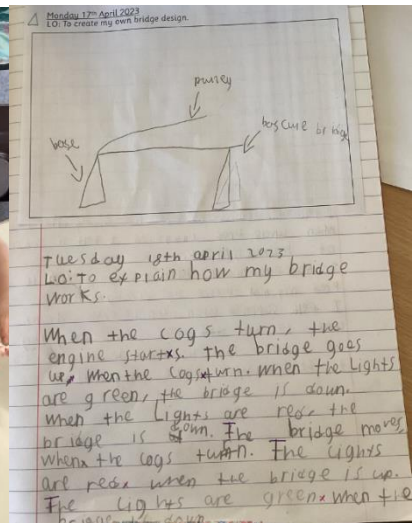 Monday 17th April 2023
LO: To create my own bridge design.
pulley
base
bascule bridge
Tuesday 18th april 2023
LO: To explain how my bridge
works.
When the cogs turn, the
engine starts. the bridge goes
up, when the cogs turn. when the Lights
are green, the bridge is down.
when the Lights are red, the
bridge is down. The bridge moves,
when the cogs turn. The lights
are red when the bridge is up.
The lights are green when the
bridge down